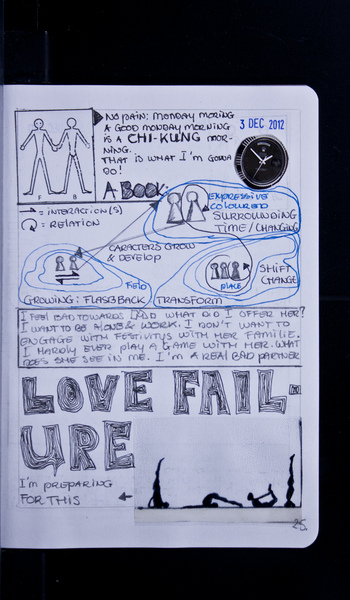 NO PAIN: MONDAY MORING
A GOOD MONDAY MORNING
IS A CHI-KUNG MOR-
NING.
THAT IS WHAT I'M GONNA
DO!
3 DEC 2012
F B
A BOOK:
→ = INTERACTION(S)
= RELATION
EXPRESSIVE
COLOURED
SURROUNDING
TIME/CHANGING
CARACTERS GROW
& DEVELOP
FIELD
GROWING: FLASHBACK
PLACE
SHIFT
CHANGE
TRANSFORM
I FEEL BAD TOWARDS WHAT DID I OFFER HER?
I WANT TO BE ALONE & WORK. I DON'T WANT TO
ENGAGE WITH FESTIVITYS WITH HER FAMILIE.
I HARDLY EVER PLAY A GAME WITH HER. WHAT
DOES SHE SEE IN ME. I'M A REAL BAD PARTNER
LOVE FAIL-
URE
I'M PREPARING
FOR THIS
25.